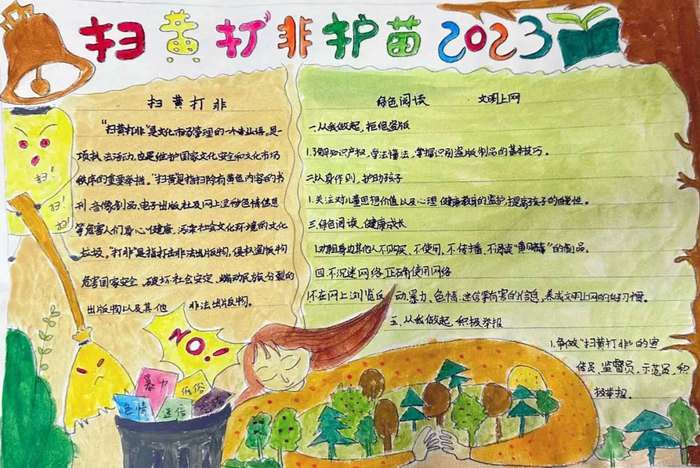 扫黄打非护苗2023
扫黄打非
"扫黄打非"是文化市场管理的一个专业语,是
项执法活动,也是维护国家文化安全和文化市场
秩序的重要举措。"扫黄是指扫除有黄色内容的书
刊、音像制品、电子出版社及网上淫秽色情信息
等危害人们身心健康、污染社会文化环境的文化
垃圾。"打非"是指打击非法出版物,侵权盗版物
危害国家安全、破坏社会安定、煽动民族分裂的
出版物以及其他 非法出版物。
绿色阅读 文明上网
一.从我做起,拒绝盗版
1.了解知识产权,学法懂法,掌握识别盗版制品的基本技巧。
二.以身作则,护助孩子
1.关注对儿童思想价值以及心理健康教育的监护,提高孩子的
三.绿色阅读,健康成长
1.动员身边其他人不购买、不使用、不传播、不浸渎"黄赌毒"的制品。
四.不沉迷网络,正确使用网络
1.不在网上浏览反动、暴力、色情、迷信等有害的信息,养成文明上网的好习惯。
五.从我做起,积极举报
1.争做"扫黄打非"的宣
传员、监督员、示范员,积
极举报。
扫!
扫!
NO!
暴力
低俗
色情
迷信